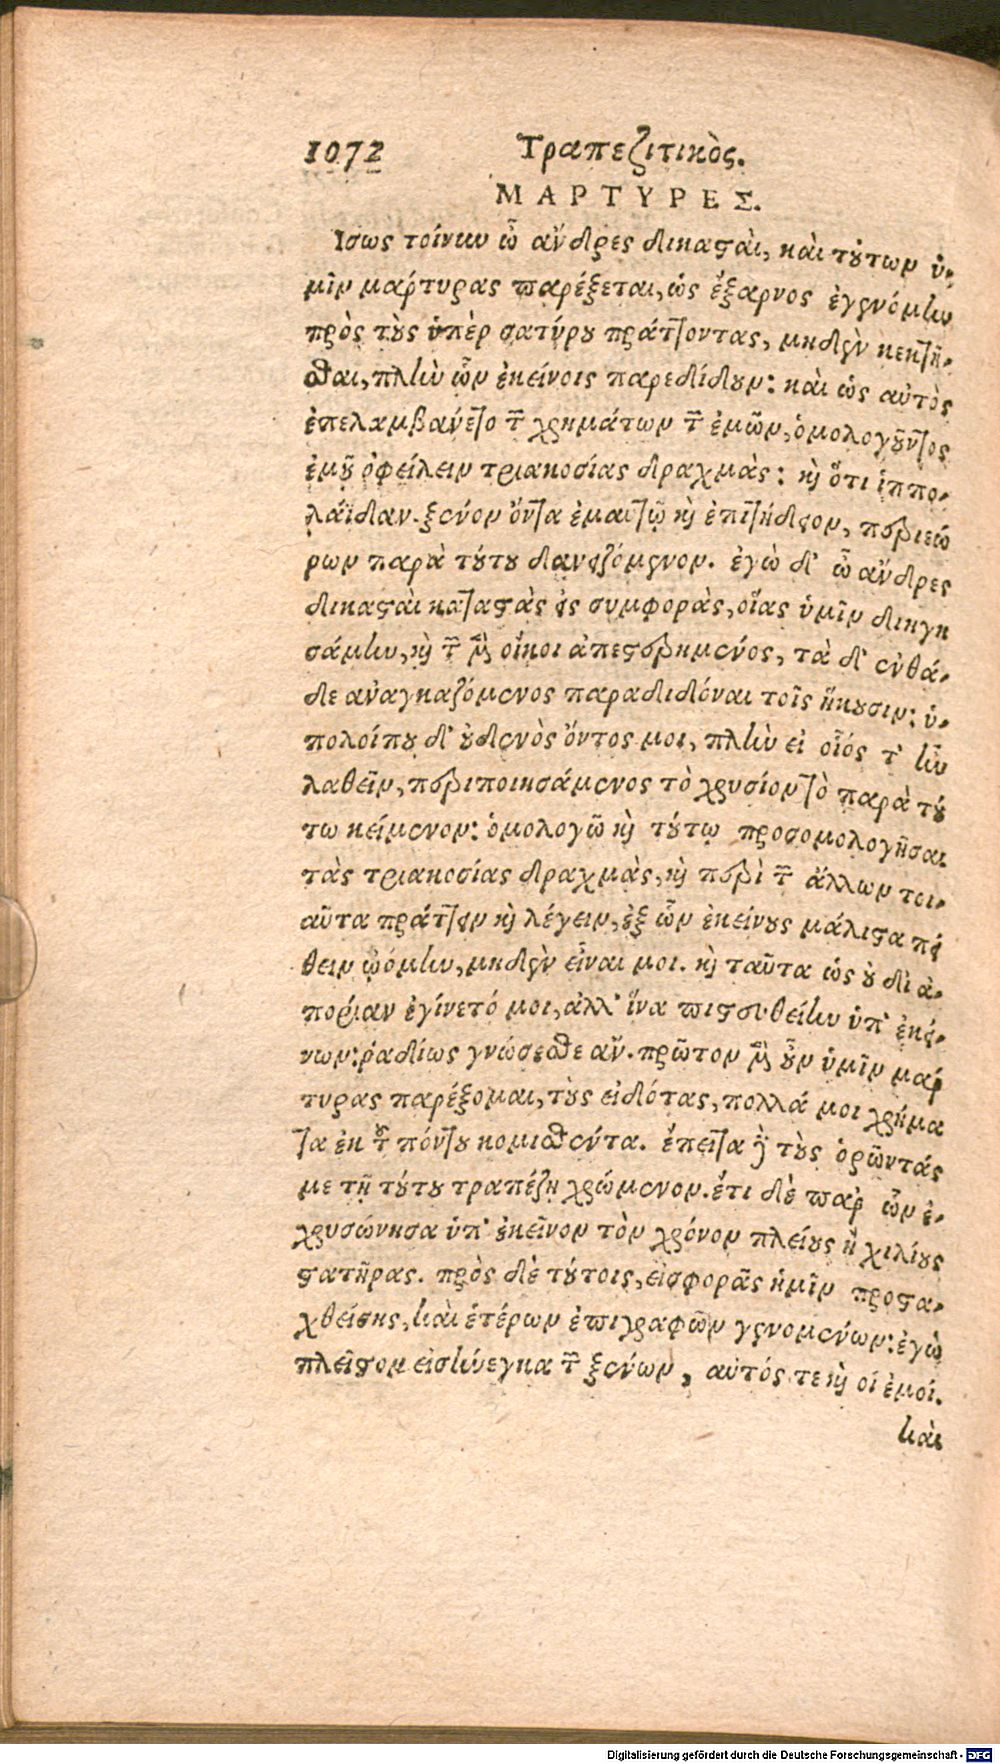 1072 Τραπεζιτικὸς.
ΜΑΡΤΥΡΕΣ.
Ισως τοίνυν ὦ ἄνδρες δικαςαὶ, καὶ τούτων ὑ-
μῖν μάρτυρας παρέξεται, ὡς ἔξαρνος ἐγενόμην
πρὸς τοὺς ὑπὲρ σατύρου πράττοντας, μηδὲν κεκτῆ-
σθαι, πλὴν ὧν ἐκείνοις παρεδίδουν: καὶ ὡς αὐτὸς
ἐπελαμβάνετο τῶν χρημάτων τῶν ἐμῶν, ὁμολογοῦντος
ἐμοῦ ὀφείλειν τριακοσίας δραχμὰς: καὶ ὅτι ἱππο-
λάϊδαν ξένον ὄντα ἐμαυτῷ καὶ ἐπιτήδειον, περιεώ
ρων παρὰ τούτου δανειζόμενον. ἐγὼ δ' ὦ ἄνδρες
δικαςαὶ καταςὰς εἰς συμφορὰς, οἵας ὑμῖν διηγη
σάμην, καὶ τῶν μὲν οἴκοι ἀπεςερημένος, τὰ δ' ἐνθά-
δε ἀναγκαζόμενος παραδιδόναι τοῖς ἥκουσιν: ὑ-
πολοίπου δ' οὐδενὸς ὄντος μοι, πλὴν εἰ οἷός τ' ἦν
λαθεῖν, περιποιησάμενος τὸ χρυσίον τὸ παρὰ τού
τω κείμενον: ὁμολογῶ καὶ τούτῳ προσομολογῆσαι
τὰς τριακοσίας δραχμὰς, καὶ περὶ τῶν ἄλλων τοι-
αῦτα πράττειν καὶ λέγειν, ἐξ ὧν ἐκείνους μάλιςα πεί
θειν ᾠόμην, μηδὲν εἶναί μοι. καὶ ταῦτα ὡς οὐ δι ἀ-
πορίαν ἐγίνετό μοι, ἀλλ' ἵνα πιςευθείην ὑπ' ἐκεί-
νων: ῥαδίως γνώσεσθε ἄν. πρῶτον μὲν οὖν ὑμῖν μάρ
τυρας παρέξομαι, τοὺς εἰδότας, πολλά μοι χρήμα
τα ἐκ τοῦ πόντου κομισθέντα. ἔπειτα δὲ τοὺς ὁρῶντάς
με τῇ τούτου τραπέζῃ χρώμενον. ἔτι δὲ παρ ὧν ἐ-
χρυσώνησα ὑπ' ἐκεῖνον τὸν χρόνον πλείους ἢ χιλίους
ςατῆρας. πρὸς δὲ τούτοις, εἰσφορᾶς ἡμῖν προςα-
χθείσης, καὶ ἑτέρων ἐπιγραφῶν γενομένων: ἐγὼ
πλεῖςον εἰσήνεγκα τῶν ξένων, αὐτός τε καὶ οἱ ἐμοί.
καὶ
Digitalisierung gefördert durch die Deutsche Forschungsgemeinschaft - DFG